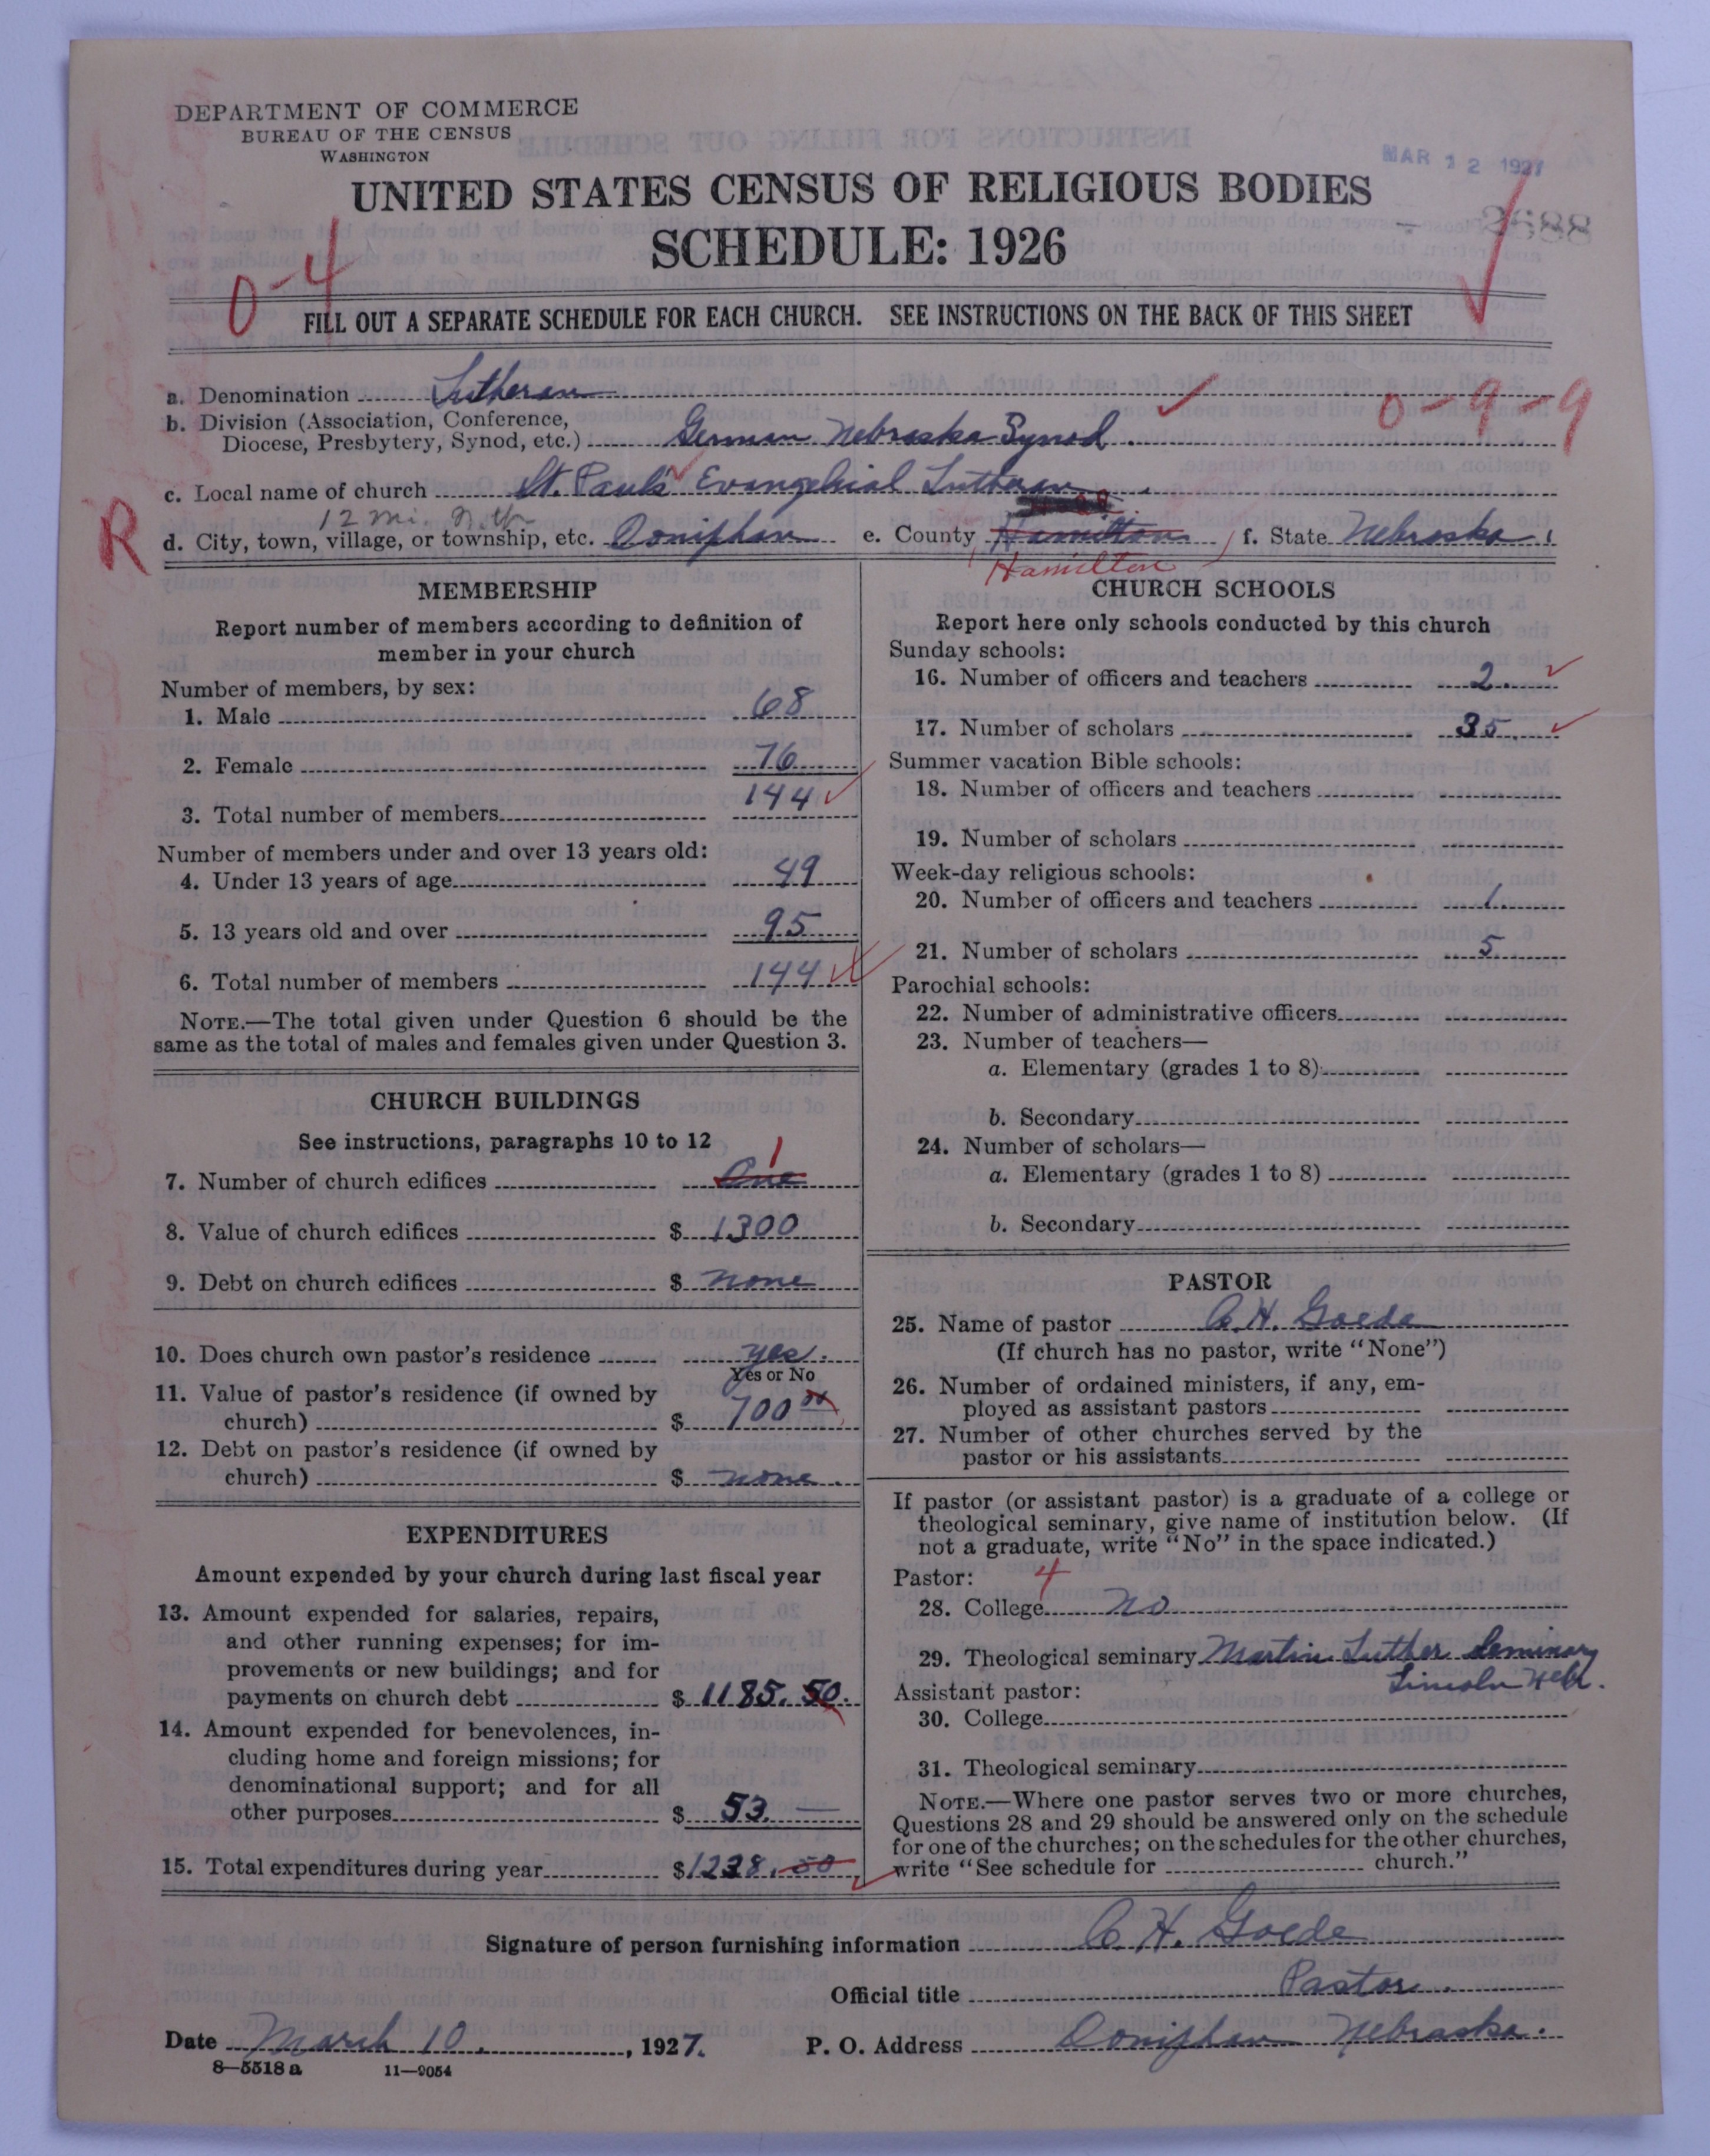 DEPARTMENT OF COMMERCE
BUREAU OF THE CENSUS
WASHINGTON
MAR 12 1927
UNITED STATES CENSUS OF RELIGIOUS BODIES
SCHEDULE: 1926
0-4
FILL OUT A SEPARATE SCHEDULE FOR EACH CHURCH. SEE INSTRUCTIONS ON THE BACK OF THIS SHEET
a. Denomination Lutheran
0-9-9
b. Division (Association, Conference,
Diocese, Presbytery, Synod, etc.) German Nebraska Synod.
c. Local name of church St. Paul's Evangelical Lutheran
12 mi. N.th.
R
d. City, town, village, or township, etc. Doniphan e. County Hamilton f. State Nebraska
Hamilton
MEMBERSHIP
Report number of members according to definition of
member in your church
Number of members, by sex:
1. Male 68
2. Female 76
3. Total number of members 144
Number of members under and over 13 years old:
4. Under 13 years of age 49
5. 13 years old and over 95
6. Total number of members 144
NOTE.—The total given under Question 6 should be the
same as the total of males and females given under Question 3.
CHURCH BUILDINGS
See instructions, paragraphs 10 to 12
1
7. Number of church edifices One
8. Value of church edifices $ 1300
9. Debt on church edifices $ none
10. Does church own pastor's residence yes.
Yes or No
11. Value of pastor's residence (if owned by
church) $ 700 00
12. Debt on pastor's residence (if owned by
church) $ none
EXPENDITURES
Amount expended by your church during last fiscal year
13. Amount expended for salaries, repairs,
and other running expenses; for im-
provements or new buildings; and for
payments on church debt $ 1185.50.
14. Amount expended for benevolences, in-
cluding home and foreign missions; for
denominational support; and for all
other purposes $ 53.—
15. Total expenditures during year $1238.50
CHURCH SCHOOLS
Report here only schools conducted by this church
Sunday schools:
16. Number of officers and teachers 2.
17. Number of scholars 35.
Summer vacation Bible schools:
18. Number of officers and teachers
19. Number of scholars
Week-day religious schools:
20. Number of officers and teachers 1.
21. Number of scholars 5
Parochial schools:
22. Number of administrative officers
23. Number of teachers—
a. Elementary (grades 1 to 8)
b. Secondary
24. Number of scholars—
a. Elementary (grades 1 to 8)
b. Secondary
PASTOR
25. Name of pastor C. H. Goede
(If church has no pastor, write "None")
26. Number of ordained ministers, if any, em-
ployed as assistant pastors
27. Number of other churches served by the
pastor or his assistants
If pastor (or assistant pastor) is a graduate of a college or
theological seminary, give name of institution below. (If
not a graduate, write "No" in the space indicated.)
Pastor: 4
28. College no
29. Theological seminary Martin Luther Seminary
Lincoln Nebr.
Assistant pastor:
30. College
31. Theological seminary
NOTE.—Where one pastor serves two or more churches,
Questions 28 and 29 should be answered only on the schedule
for one of the churches; on the schedules for the other churches,
write "See schedule for church."
Signature of person furnishing information C. H. Goede
Official title Pastor.
Date March 10., 1927. P. O. Address Doniphan Nebraska.
8—5518 a 11—9054